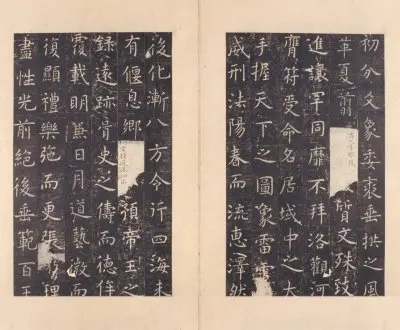 初分爻象委裘垂拱之風
革夏翦
質文殊致
進讓罕同靡不拜洛觀河
膺符受命名居域中之大
手握天下之圖象雷電
威刑法陽春而流惠澤然
後化漸八方令行四海未
有偃息鄉
預帝王之
錄遠跡胥史之儔而德侔
覆載明兼日月道藝微而
復顯禮樂弛而更張理
盡性光前絕後垂範百王